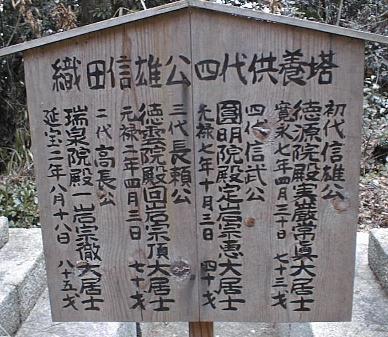 織田信雄公四代供養塔
初代信雄公
徳源院殿実巌常真大居士
寛永七年四月三十日 七十三才
四代信武公
圓明院殿定岩宗恵大居士
元禄七年十月三日 四十才
三代長頼公
徳雲院殿回岩宗頂大居士
元禄二年四月三日 七十才
二代高長公
瑞泉院殿一岩宗徹大居士
延宝二年八月十八日 八十五才